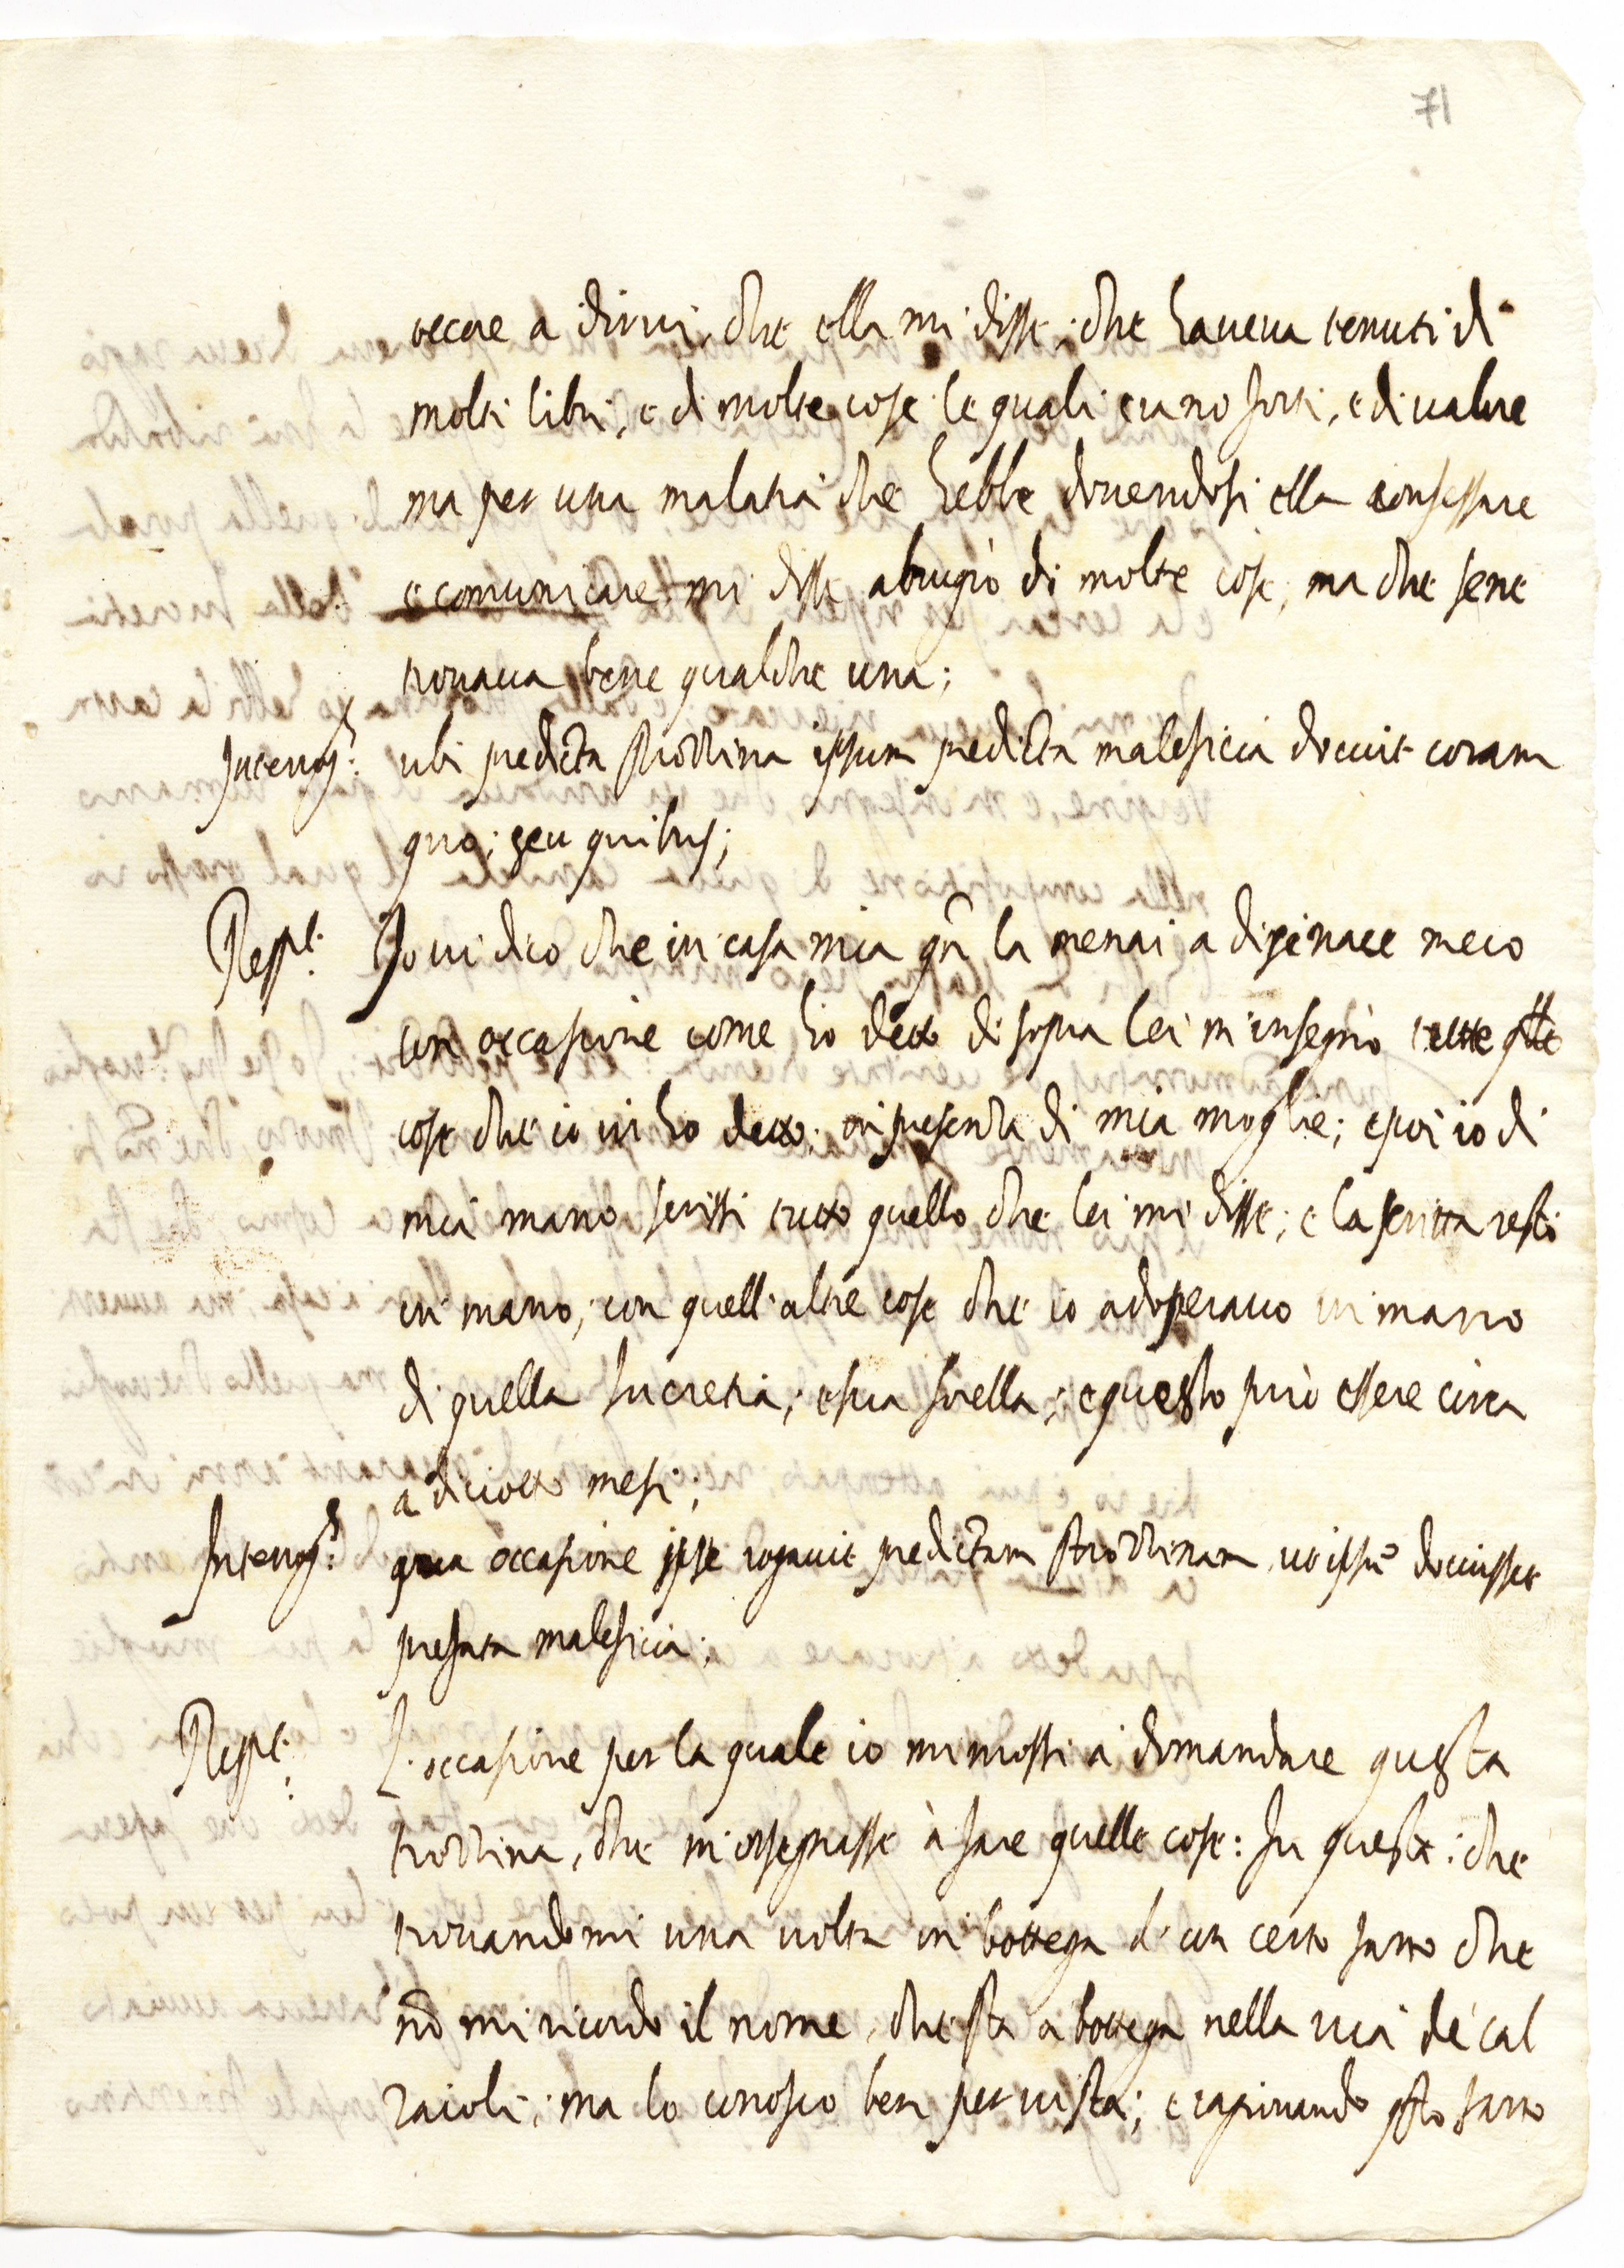 71
recare a dirvi, che ella mi disse, che haveva tenuti di
molti libri, e di molte cose le quali erano forti, e di valore
ma per una malatia che hebbe dovendosi ella confessare
e comunicare mi disse abrugiò di molte cose, ma che sene
trovava bene qualche una;
Interrog.s: ubi predicta strozzina ipsum predicta maleficia docuit coram
quo; seu quibus;
Resp.t: Io vi dico che in casa mia qn̄ la menai a disinare meco
con occasione come ho detto di sopra lei m'insegnò tutte q̄ste
cose che io vi ho detto in presenza di mia moglie; e poi io di
mia mano scrissi tutto quello che lei mi disse; e la scritta restò
in mano, con quell'altre cose che io adoperavo in mano
di quella Lucretia, e sua sorella; e questo può essere circa
a diciotto mesi;
Interrog.s: qua occasione ipse rogavit predictam strozzinam, ut ipsū docuisset
prefata maleficia;
Resp.t: L'occasione per la quale io mi mossi a domandare questa
strozzina, che m'insegnasse à fare quelle cose: fu questa: che
trovandomi una volta in bottega d'un certo sarto che
nō mi ricordo il nome, che sta a bottega nella via de' cal
zaioli, ma lo conosco ben per vista; e ragionando q̄sto sarto